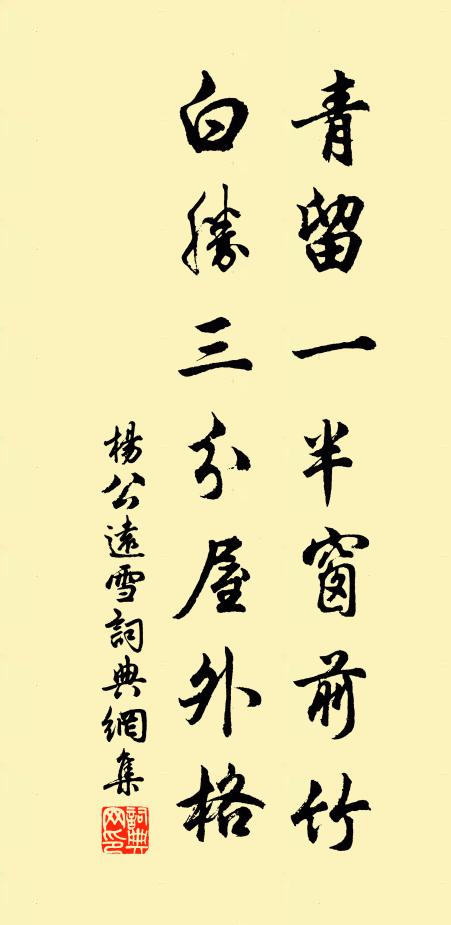 青留一半窗前竹
白勝三分屋外格
楊公遠雪詞典網集
詞典網印